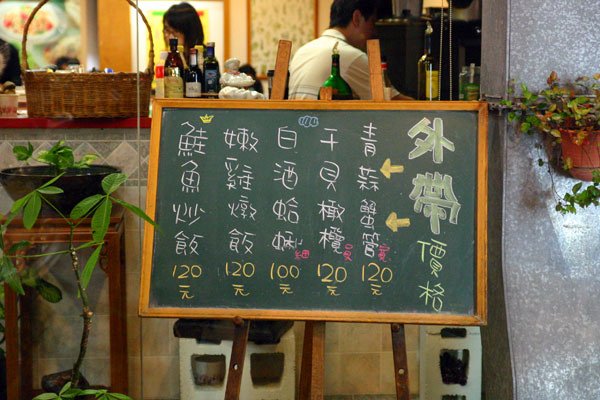 外帶價格
青蒜蟹管寬120元
干貝橄欖員120元
白酒蛤蜊細100元
嫩雞燉飯120元
鮭魚炒飯120元